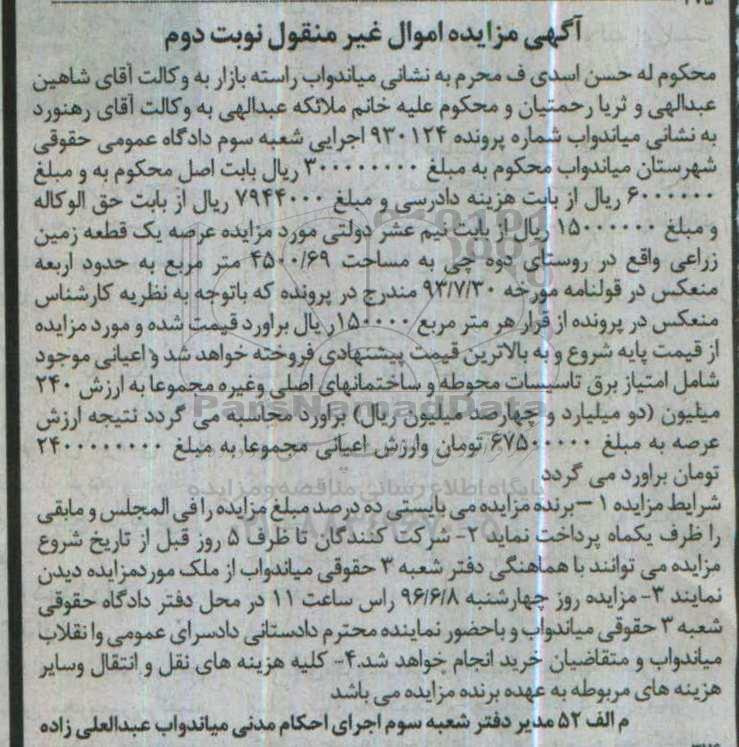 آگهی مزایده اموال غیر منقول نوبت دوم
محکوم له حسن اسدی ف محرم به نشانی میاندواب راسته بازار به وکالت آقای شاهین
عبدالهی و ثریا رحمتیان و محکوم علیه خانم ملائکه عبدالهی به وکالت آقای رهنورد
به نشانی میاندواب شماره پرونده ۹۳۰۱۲۴ اجرایی شعبه سوم دادگاه عمومی حقوقی
شهرستان میاندواب محکوم به مبلغ ۳۰۰۰۰۰۰۰۰ ریال بابت اصل محکوم به و مبلغ
۶۰۰۰۰۰۰ ریال از بابت هزینه دادرسی و مبلغ ۷۹۴۴۰۰۰ ریال از بابت حق الوکاله
و مبلغ ۱۵۰۰۰۰۰۰ ریال از بابت نیم عشر دولتی مورد مزایده عرصه یک قطعه زمین
زراعی واقع در روستای دوه چی به مساحت ۴۵۰۰/۶۹ متر مربع به حدود اربعه
منعکس در قولنامه مورخه ۹۳/۷/۳۰ مندرج در پرونده که باتوجه به نظریه کارشناس
منعکس در پرونده از قرار هر متر مربع ۱۵۰۰۰۰ ریال براورد قیمت شده و مورد مزایده
از قیمت پایه شروع و به بالاترین قیمت پیشنهادی فروخته خواهد شد و اعیانی موجود
شامل امتیاز برق تاسیسات محوطه و ساختمانهای اصلی وغیره مجموعا به ارزش ۲۴۰
میلیون (دو میلیارد و چهارصد میلیون ریال) براورد محاسبه می گردد نتیجه ارزش
عرصه به مبلغ ۶۷۵۰۰۰۰۰ تومان وارزش اعیانی مجموعا به مبلغ ۲۴۰۰۰۰۰۰۰۰
تومان براورد می گردد
شرایط مزایده ۱ –برنده مزایده می بایستی ده درصد مبلغ مزایده را فی المجلس و مابقی
را ظرف یکماه پرداخت نماید ۲- شرکت کنندگان تا ظرف ۵ روز قبل از تاریخ شروع
مزایده می توانند با هماهنگی دفتر شعبه ۳ حقوقی میاندواب از ملک موردمزایده دیدن
نمایند ۳- مزایده روز چهارشنبه ۹۶/۶/۸ راس ساعت ۱۱ در محل دفتر دادگاه حقوقی
شعبه ۳ حقوقی میاندواب و باحضور نماینده محترم دادستانی دادسرای عمومی وانقلاب
میاندواب و متقاضیان خرید انجام خواهد شد.۴- کلیه هزینه های نقل و انتقال وسایر
هزینه های مربوطه به عهده برنده مزایده می باشد
م الف ۵۲ مدیر دفتر شعبه سوم اجرای احکام مدنی میاندواب عبدالعلی زاده
ParsNamadData
پایگاه اطلاع رسانی مناقصه و مزایده